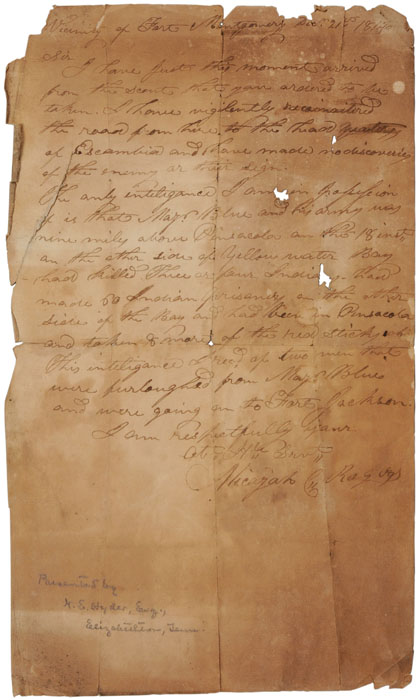 Vicinity of Fort Montgomery Decr 21st
Sir
I have just this moment arrived
from the scout that you ordered to be
taken. I have vigilently reconnoitered
the road from here to the head quarters
of Escambia and have made no discoveries
of the enemy or their sign
The only inteligance I am in possession
of is that Majr Blue and his army was
nine mily above Pensacola on the 18 inst
on the other side of Yellow water Bay
had killed three or four Indians had
made 50 Indian prisoners on the other
side of the Bay and had been in Pensacola
and taken 8 more of the red sticks
This inteligance I recd of two men that
were furloughed from Majr Blue
and were going on to Fort Jackson.
I am respectfully your
Obt Hbl Srvt
Micazah
Presented by
N. E. Hyder, Esq.,
Elizabethton, Tenn.